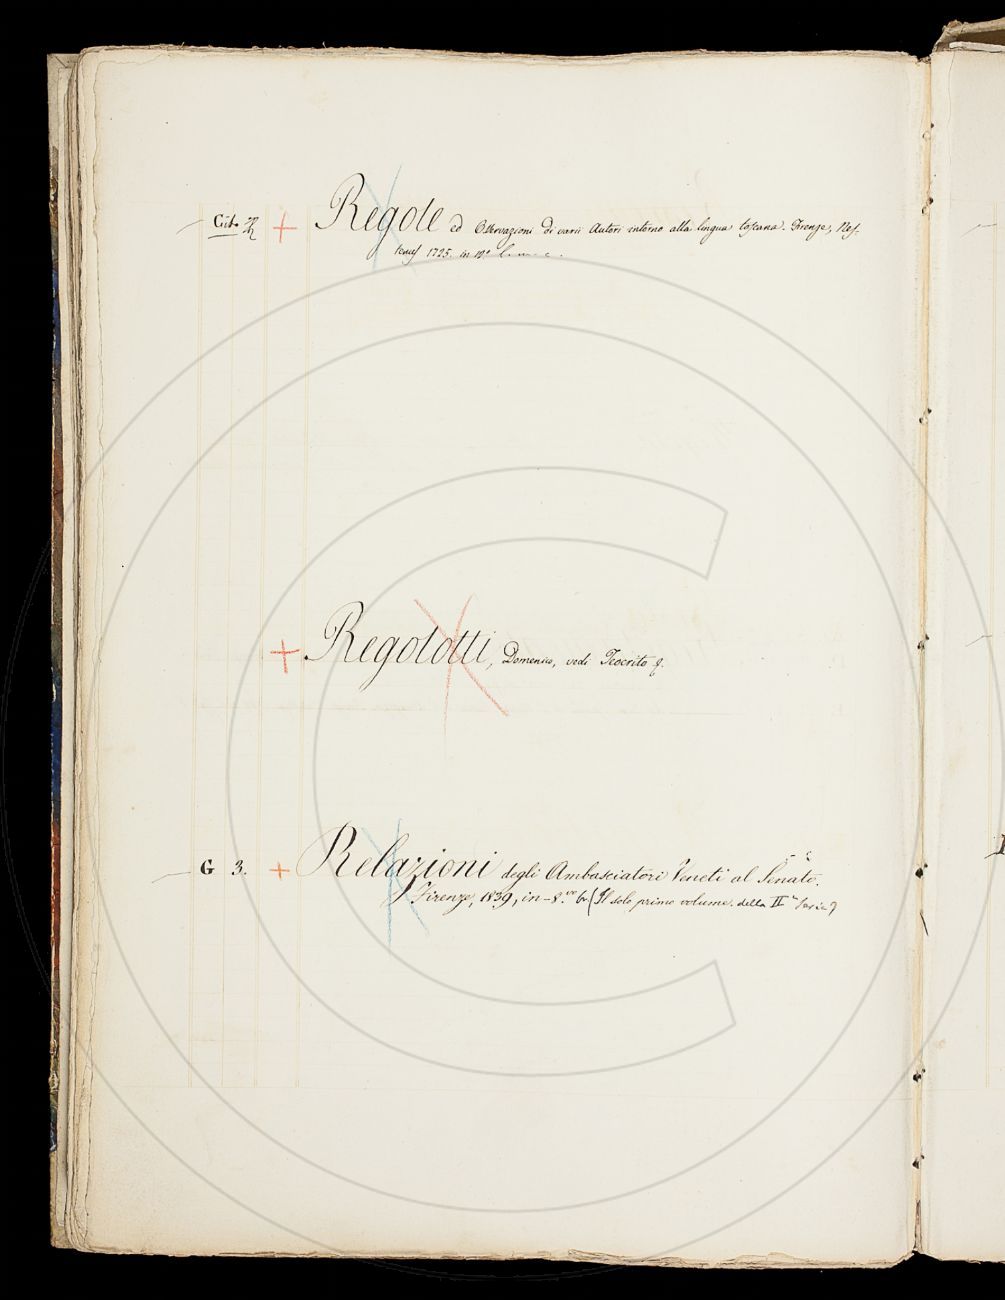 Regole ed Osservazioni di varii Autori intorno alla lingua toscana. Firenze, Nes-
tenus 1725. in 12°
+ Regolotti, Domenico, vedi Teocrito
G 3. + Relazioni degli Ambasciatori Veneti al Senato.
Firenze, 1839, in-8.vo br (Il solo primo volume della IIa Serie)